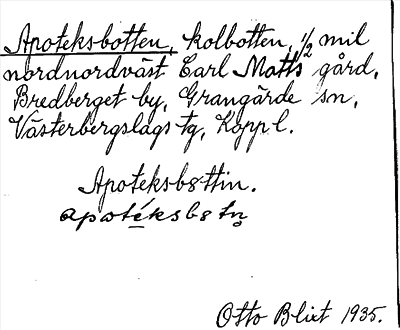 Apoteksbotten, kolbotten, ½ mil
nordnordväst Carl Matts gård,
Bredberget by, Grangärde sn,
Västerbergslags tg, Kopp l.
Apoteksbottin.
apotéksbotn̥
Otto Blixt 1935.